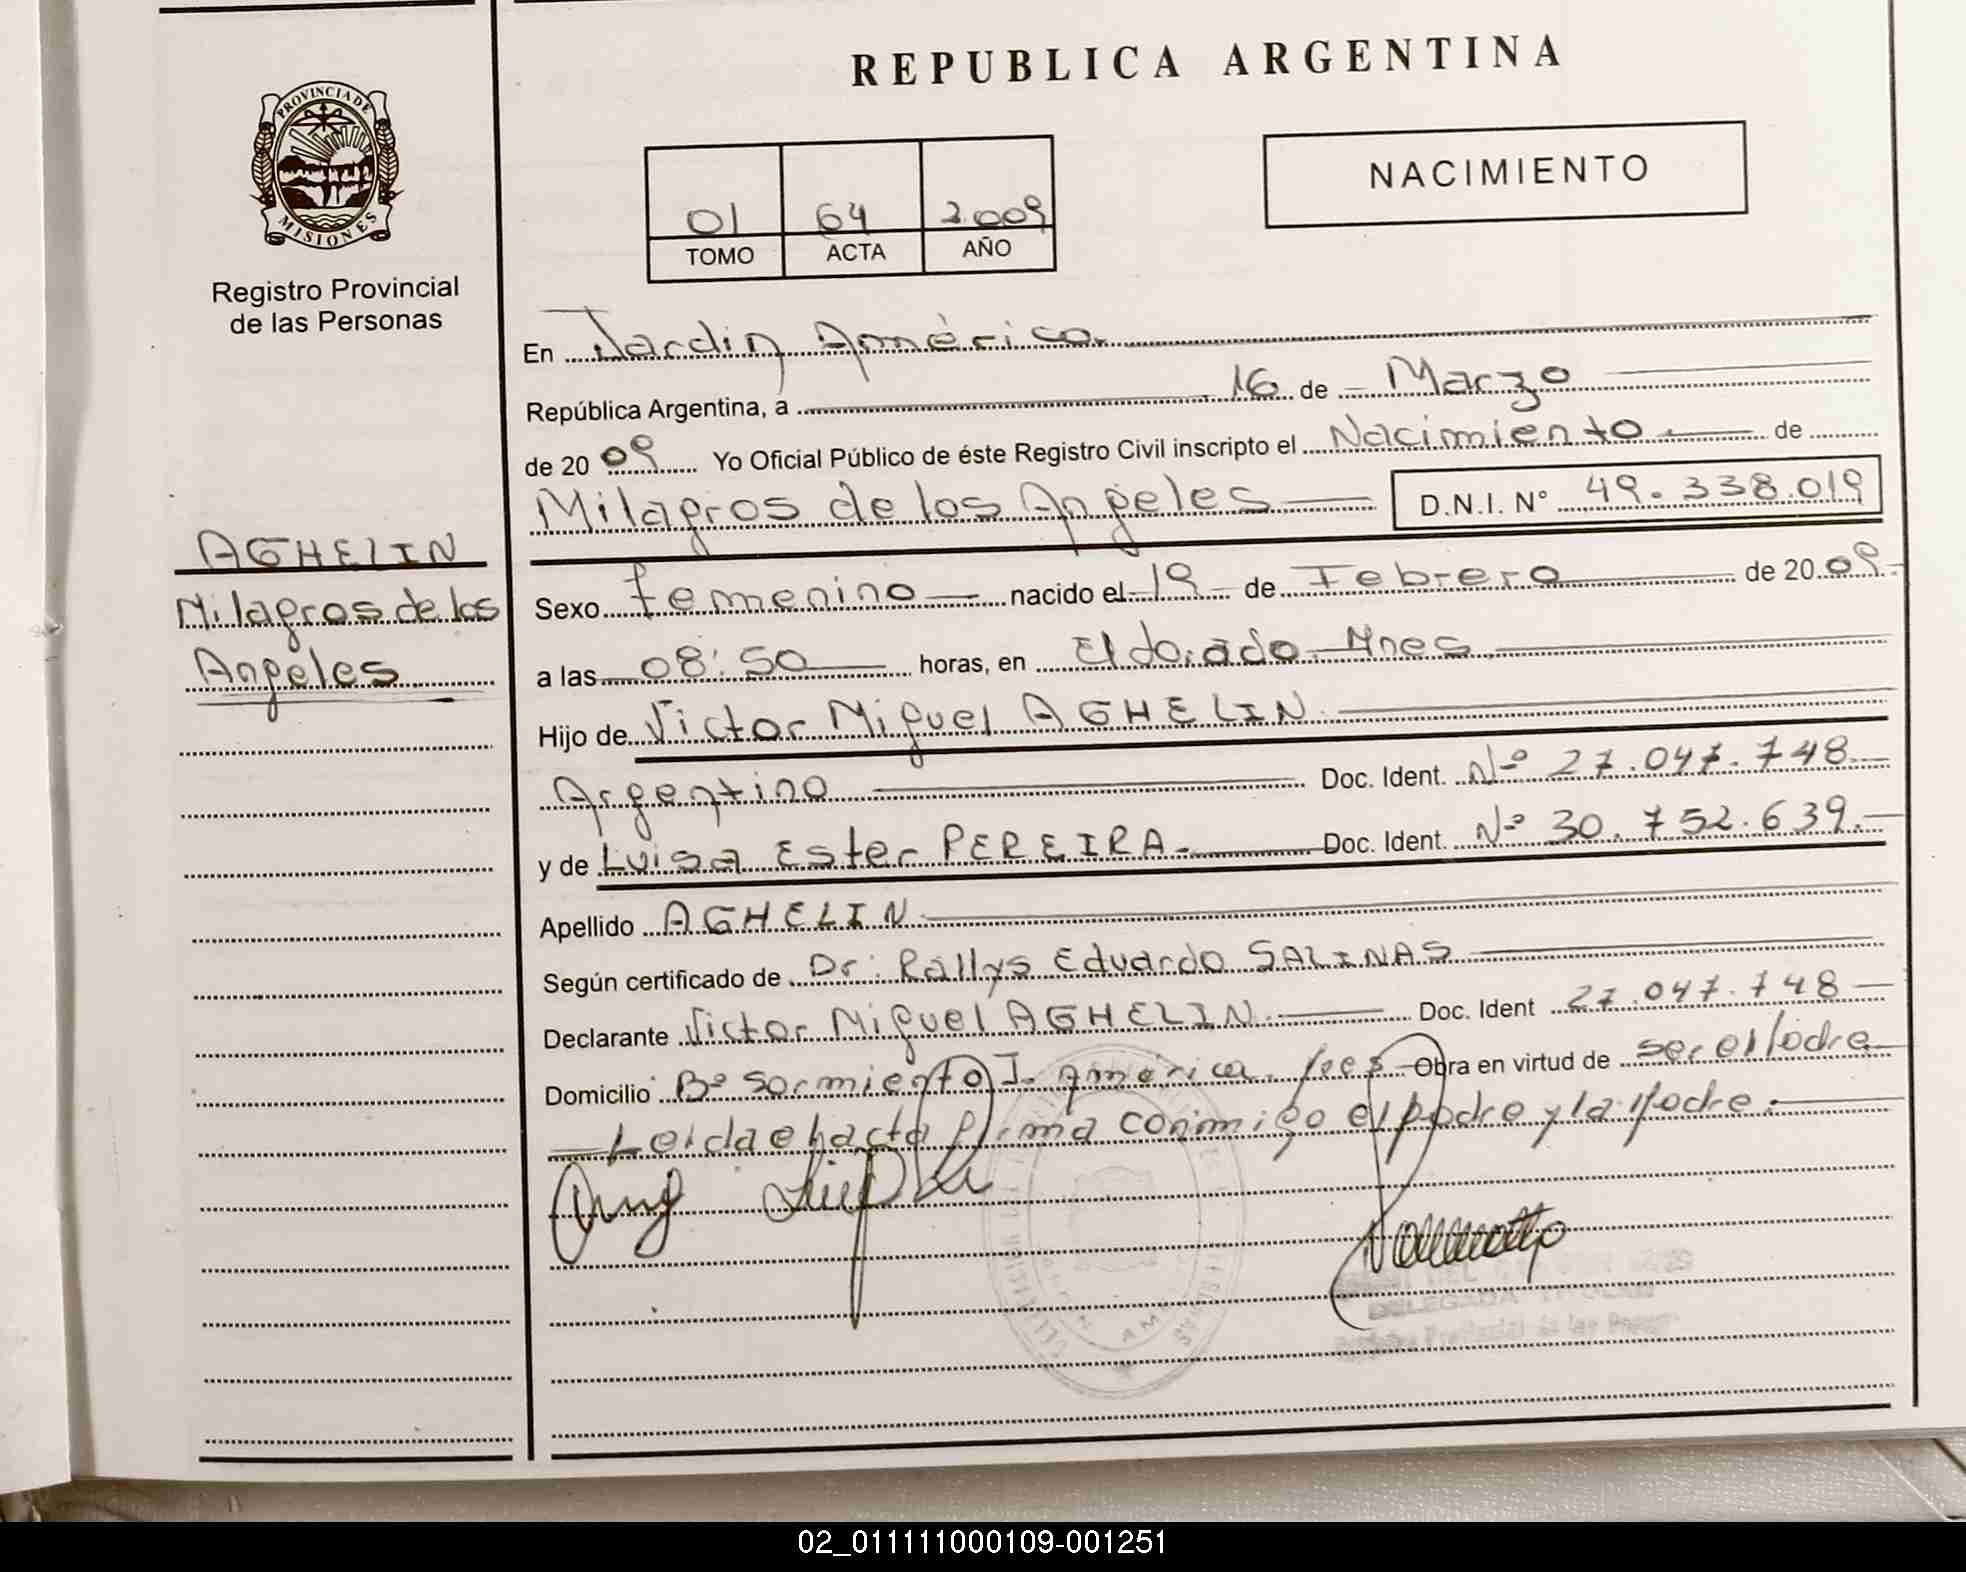 REPUBLICA ARGENTINA
PROVINCIA DE
MISIONES
Registro Provincial
de las Personas
NACIMIENTO
01 64 2.009
TOMO ACTA AÑO
En Jardin América.
República Argentina, a 16 de Marzo
de 20 09 Yo Oficial Público de éste Registro Civil inscripto el Nacimiento de
Milagros de los Angeles D.N.I. N° 49.338.019
AGHELIN
Milagros de los
Angeles
Sexo femenino nacido el 19 de Febrero de 20 09.
a las 08:50 horas, en Eldorado. Mnes.
Hijo de Victor Miguel AGHELIN.
Argentino Doc. Ident. Nº 27.047.748
y de Luisa Ester PEREIRA. Doc. Ident. Nº 30.752.639.
Apellido AGHELIN
Según certificado de Dr: Rallys Eduardo SALINAS
Declarante Victor Miguel AGHELIN. Doc. Ident 27.047.748
Domicilio Bº Sarmiento J. América. Obra en virtud de ser el Padre
Leida el acta firma conmigo el padre y la Madre.
DELEGADA TITULAR
Registro Provincial de las Personas
02_011111000109-001251